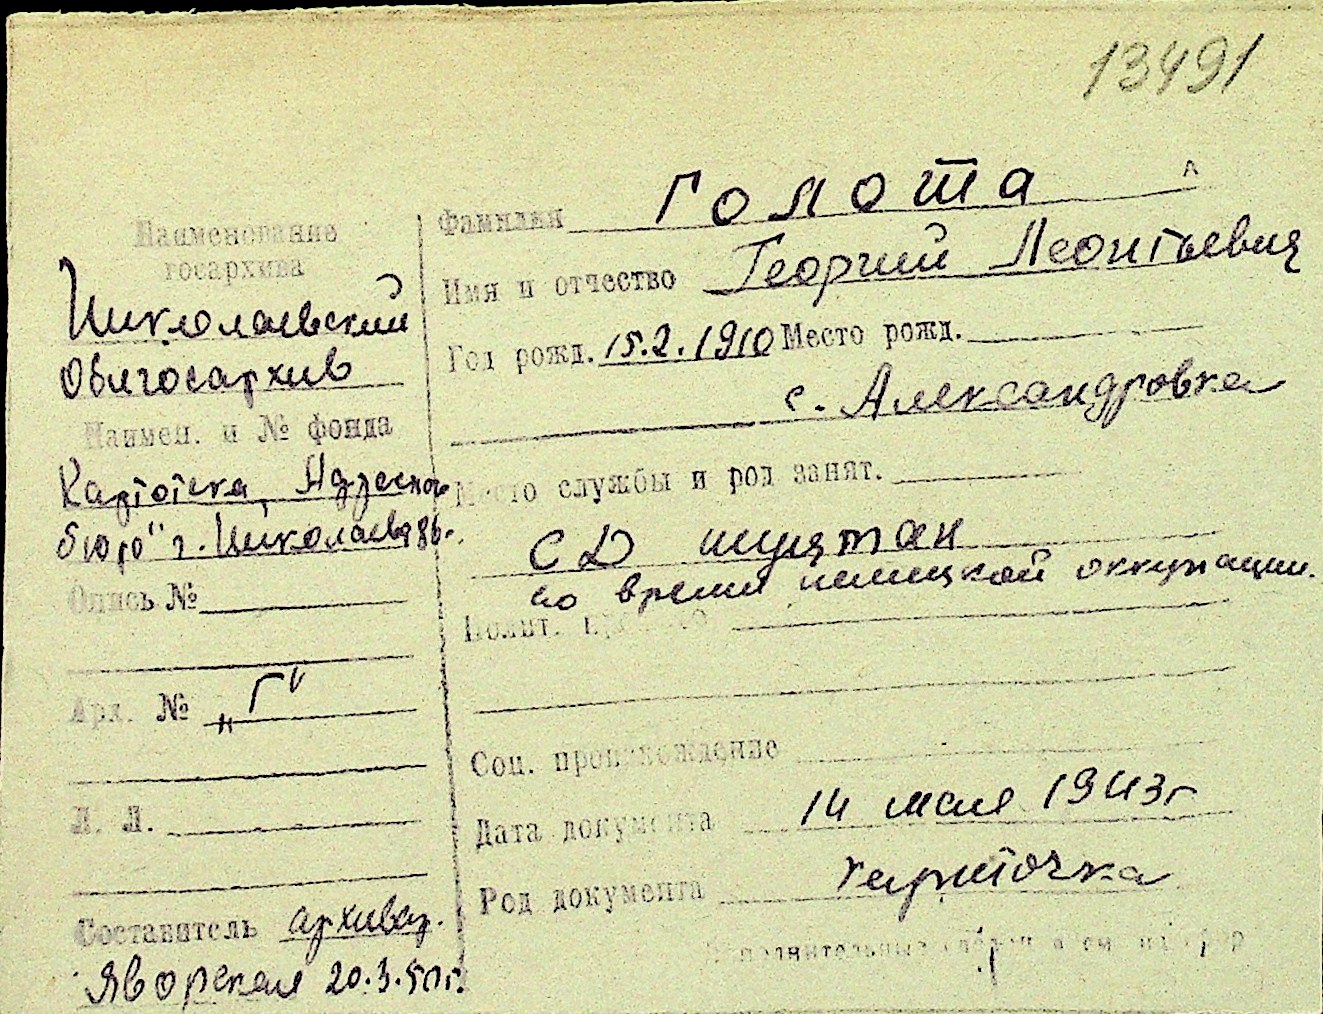 13491
Наименование
госархива
Николаевский
Облгосархив
Наимен. и № фонда
Картотека „Адресное
бюро" г. Николаев
Опись №
Арх. № „Г"
Л. Л.
Составитель архивар.
Яворская 20.3.50г.
Фамилия Голота
Имя и отчество Георгий Леонтьевич
Год рожд. 15.2.1910 Место рожд.
с. Александровка
Место службы и род занят.
СД шуцман
во время немецкой оккупации.
Полит.
Соц. происхождение
Дата документа 14 мая 1943г
Род документа карточка